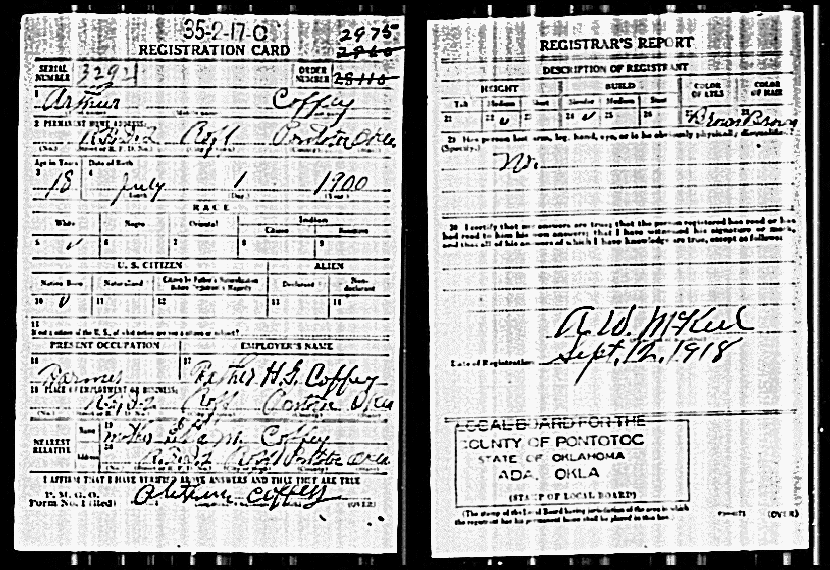 35-2-17-C
2975
2960
REGISTRATION CARD
SERIAL NUMBER 3292
ORDER NUMBER
1 Arthur Coffey
2 PERMANENT HOME ADDRESS:
R.F.D.2 Roff Pontotoc Okla
Age in Years Date of Birth
3 18 4 July 1 1900
RACE
White Negro Oriental Indian
Citizen
5 ✓ 6 7 8 9
U. S. CITIZEN ALIEN
Native Born Naturalized Citizen by Father's Naturalization Before Registrant's Majority Declarant Non-declarant
10 ✓ 11 12 13 14
15
If not a citizen of the U. S., of what nation are you a citizen or subject?
PRESENT OCCUPATION EMPLOYER'S NAME
16 Farmer 17 Father H.G. Coffey
18 PLACE OF EMPLOYMENT OR BUSINESS:
R.F.D.2 Roff Pontotoc Okla
NEAREST RELATIVE
Name 19 Mother M. Coffey
Address 20 R.F.D.2 Roff Pontotoc Okla
I AFFIRM THAT I HAVE VERIFIED ABOVE ANSWERS AND THAT THEY ARE TRUE
P. M. G. O.
Form No. 1 (Red) Arthur Coffey (OVER)
REGISTRAR'S REPORT
DESCRIPTION OF REGISTRANT
HEIGHT BUILD COLOR OF EYES COLOR OF HAIR
Tall Medium Short Slender Medium Stout
21 22 ✓ 23 24 ✓ 25 26 27 Brown 28 Brown
29 Has person lost arm, leg, hand, eye, or is he obviously physically disqualified?
(Specify.)
No.
30 I certify that my answers are true; that the person registered has read or has
had read to him his own answers; that I have witnessed his signature or mark,
and that all of his answers of which I have knowledge are true, except as follows:
A. W. McKeel
Date of Registration Sept. 12, 1918
LOCAL BOARD FOR THE
COUNTY OF PONTOTOC
STATE OF OKLAHOMA
ADA, OKLA
(STAMP OF LOCAL BOARD)
(The stamp of the Local Board having jurisdiction of the area in which
the registrant has his permanent home shall be placed in this box.)
(OVER)